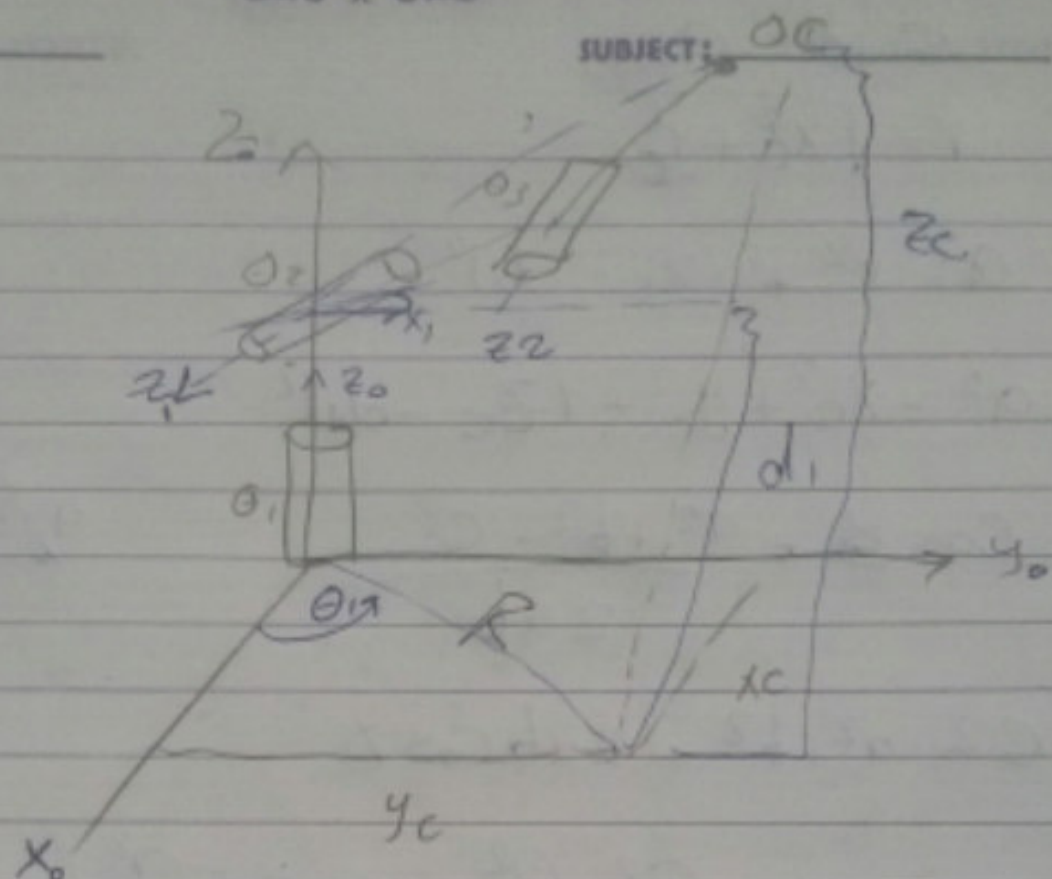 SUBJECT: OC
Z₀
θ₃
Zc
θ₂
x₁
Z2
Z₁
Z₀
d₁
θ₁
y₀
θ₁
R
xc
yc
X₀